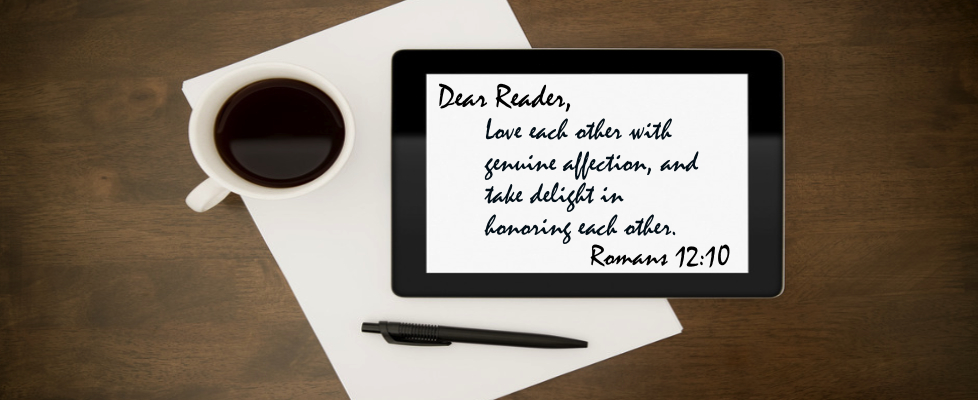 Dear Reader,
Love each other with
genuine affection, and
take delight in
honoring each other.
Romans 12:10